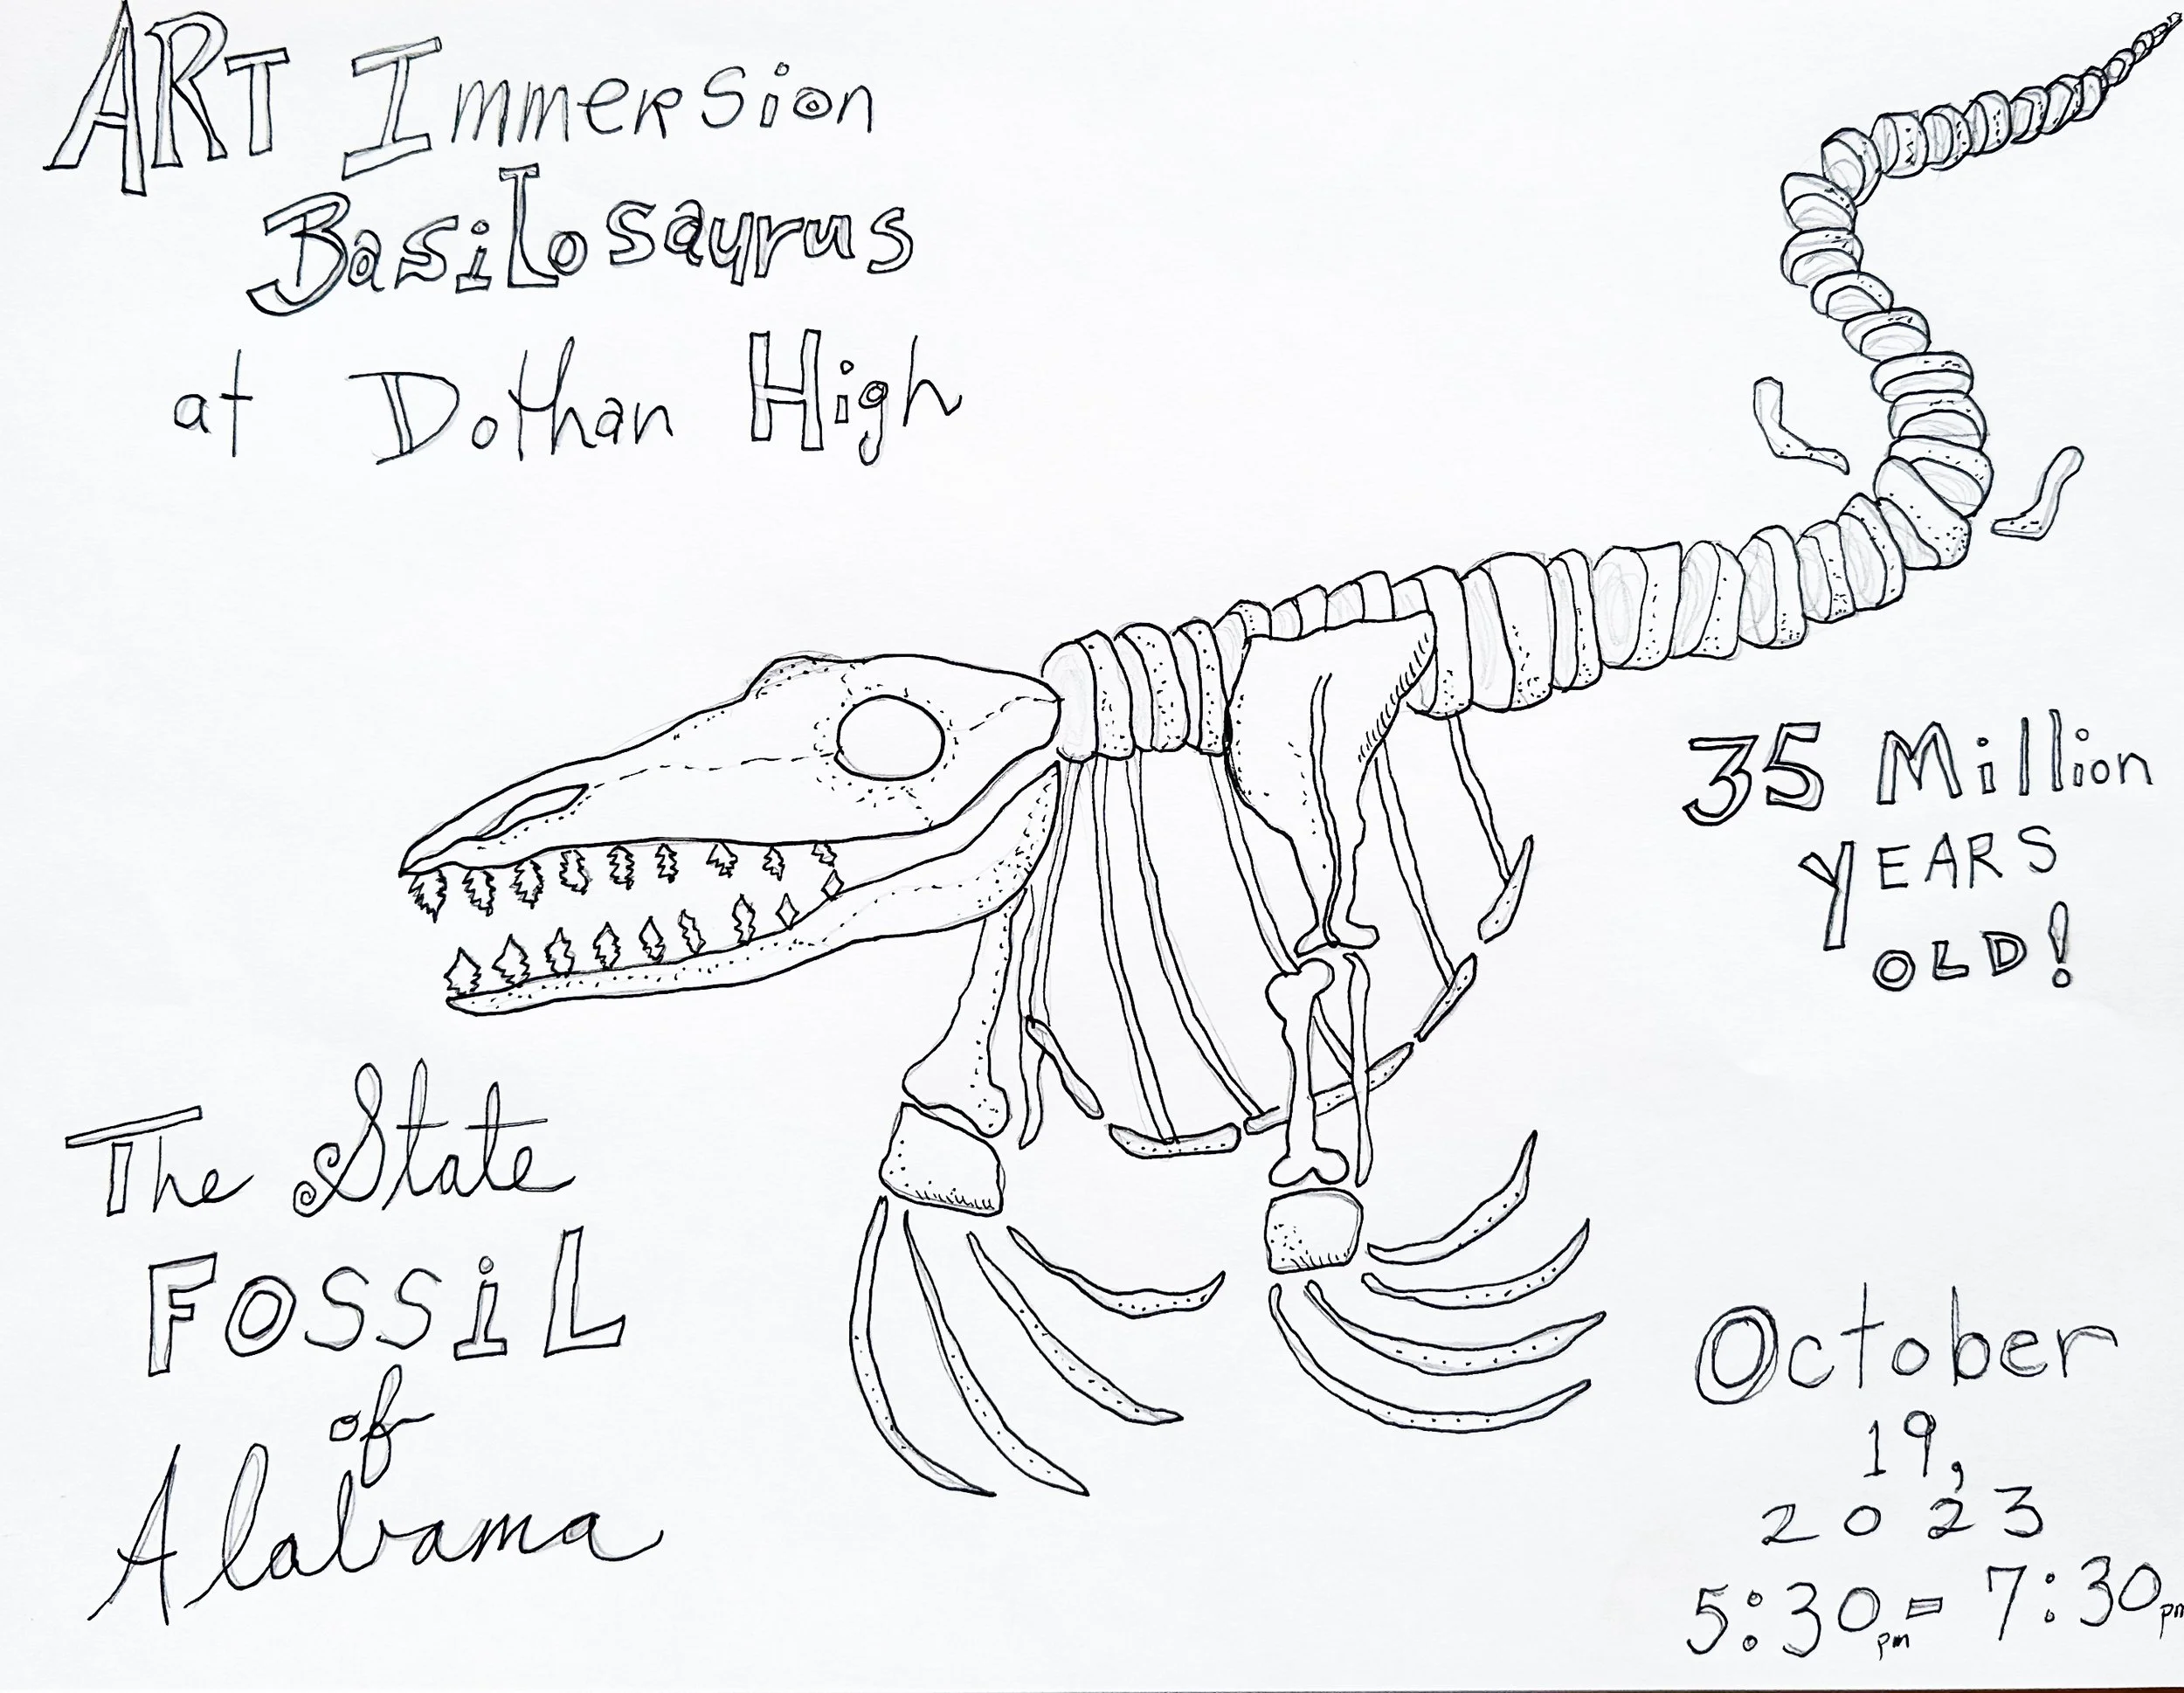 ART Immersion
BasiLosaurus
at Dothan High
35 Million
YEARS
OLD!
The State
FOSSiL
of
Alabama
October
19,
2023
5:30pm = 7:30pm